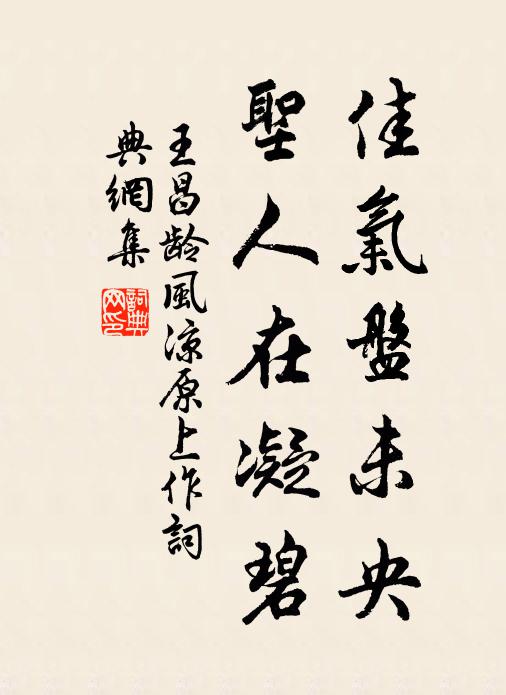 佳氣盤未央
聖人在凝碧
王昌龄風涼原上作詞
典網集
詞典
网印